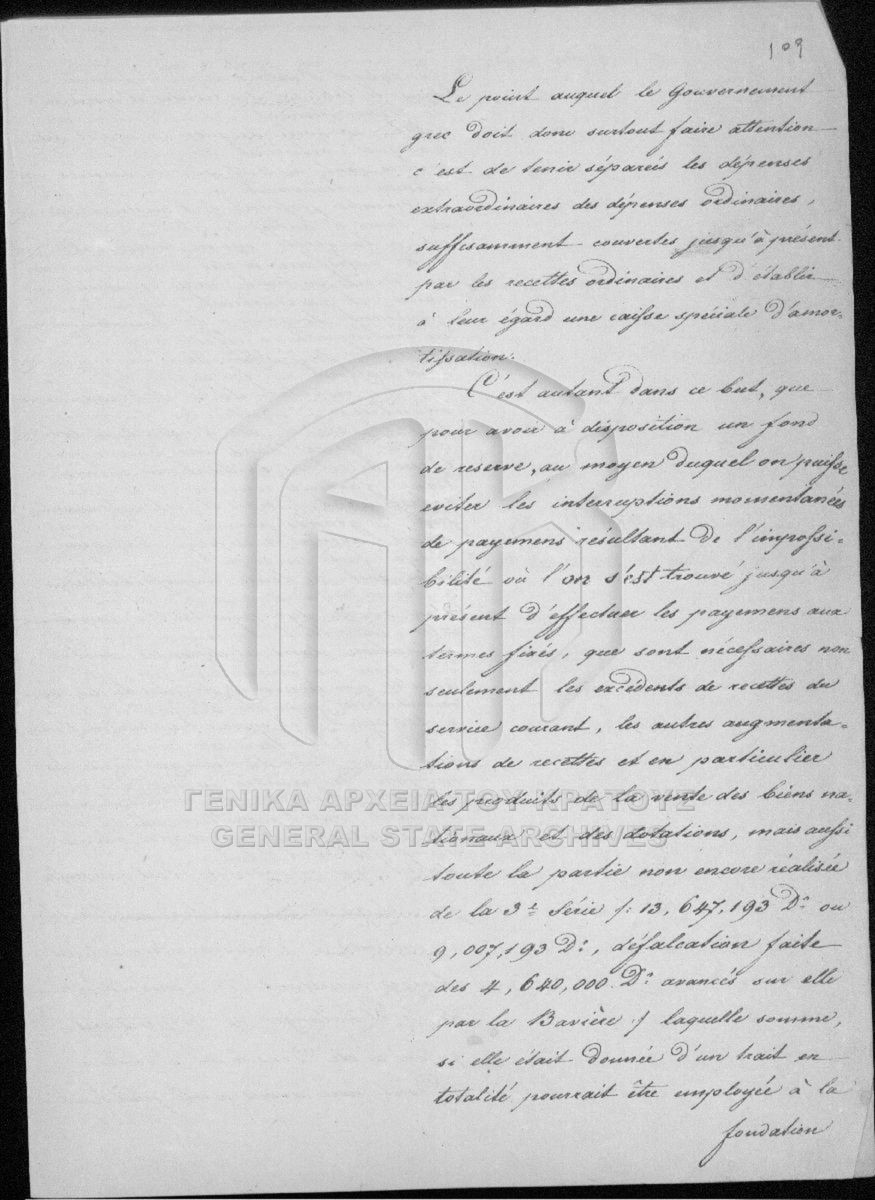 109
Le point auquel le Gouvernement
grec doit donc surtout faire attention
c'est de tenir séparés les dépenses
extraordinaires des dépenses ordinaires,
suffisamment couvertes jusqu'à présent
par les recettes ordinaires et d'établir
à leur égard une caisse spéciale d'amor-
tissation.
C'est autant dans ce but, que
pour avoir à disposition un fond
de reserve, au moyen duquel on puisse
eviter les interruptions momentanées
de payemens résultant de l'impossi-
bilité où l'on s'est trouvé jusqu'à
présent d'effectuer les payemens aux
termes fixés, que sont nécessaires non
seulement les excédents de recettes du
service courant, les autres augmenta-
tions de recettes et en particulier
les produits de la vente des biens na-
tionaux et des dotations, mais aussi
toute la partie non encore réalisée
de la 3e Série /: 13,647,193 Ds ou
9,007,193 Ds, défalcation faite
des 4,640,000 Ds avancés sur elle
par la Bavière :/ laquelle somme,
si elle était donnée d'un trait en
totalité pourrait être employée à la
fondation
ΓΕΝΙΚΑ ΑΡΧΕΙΑ ΤΟΥ ΚΡΑΤΟΥΣ
GENERAL STATE ARCHIVES